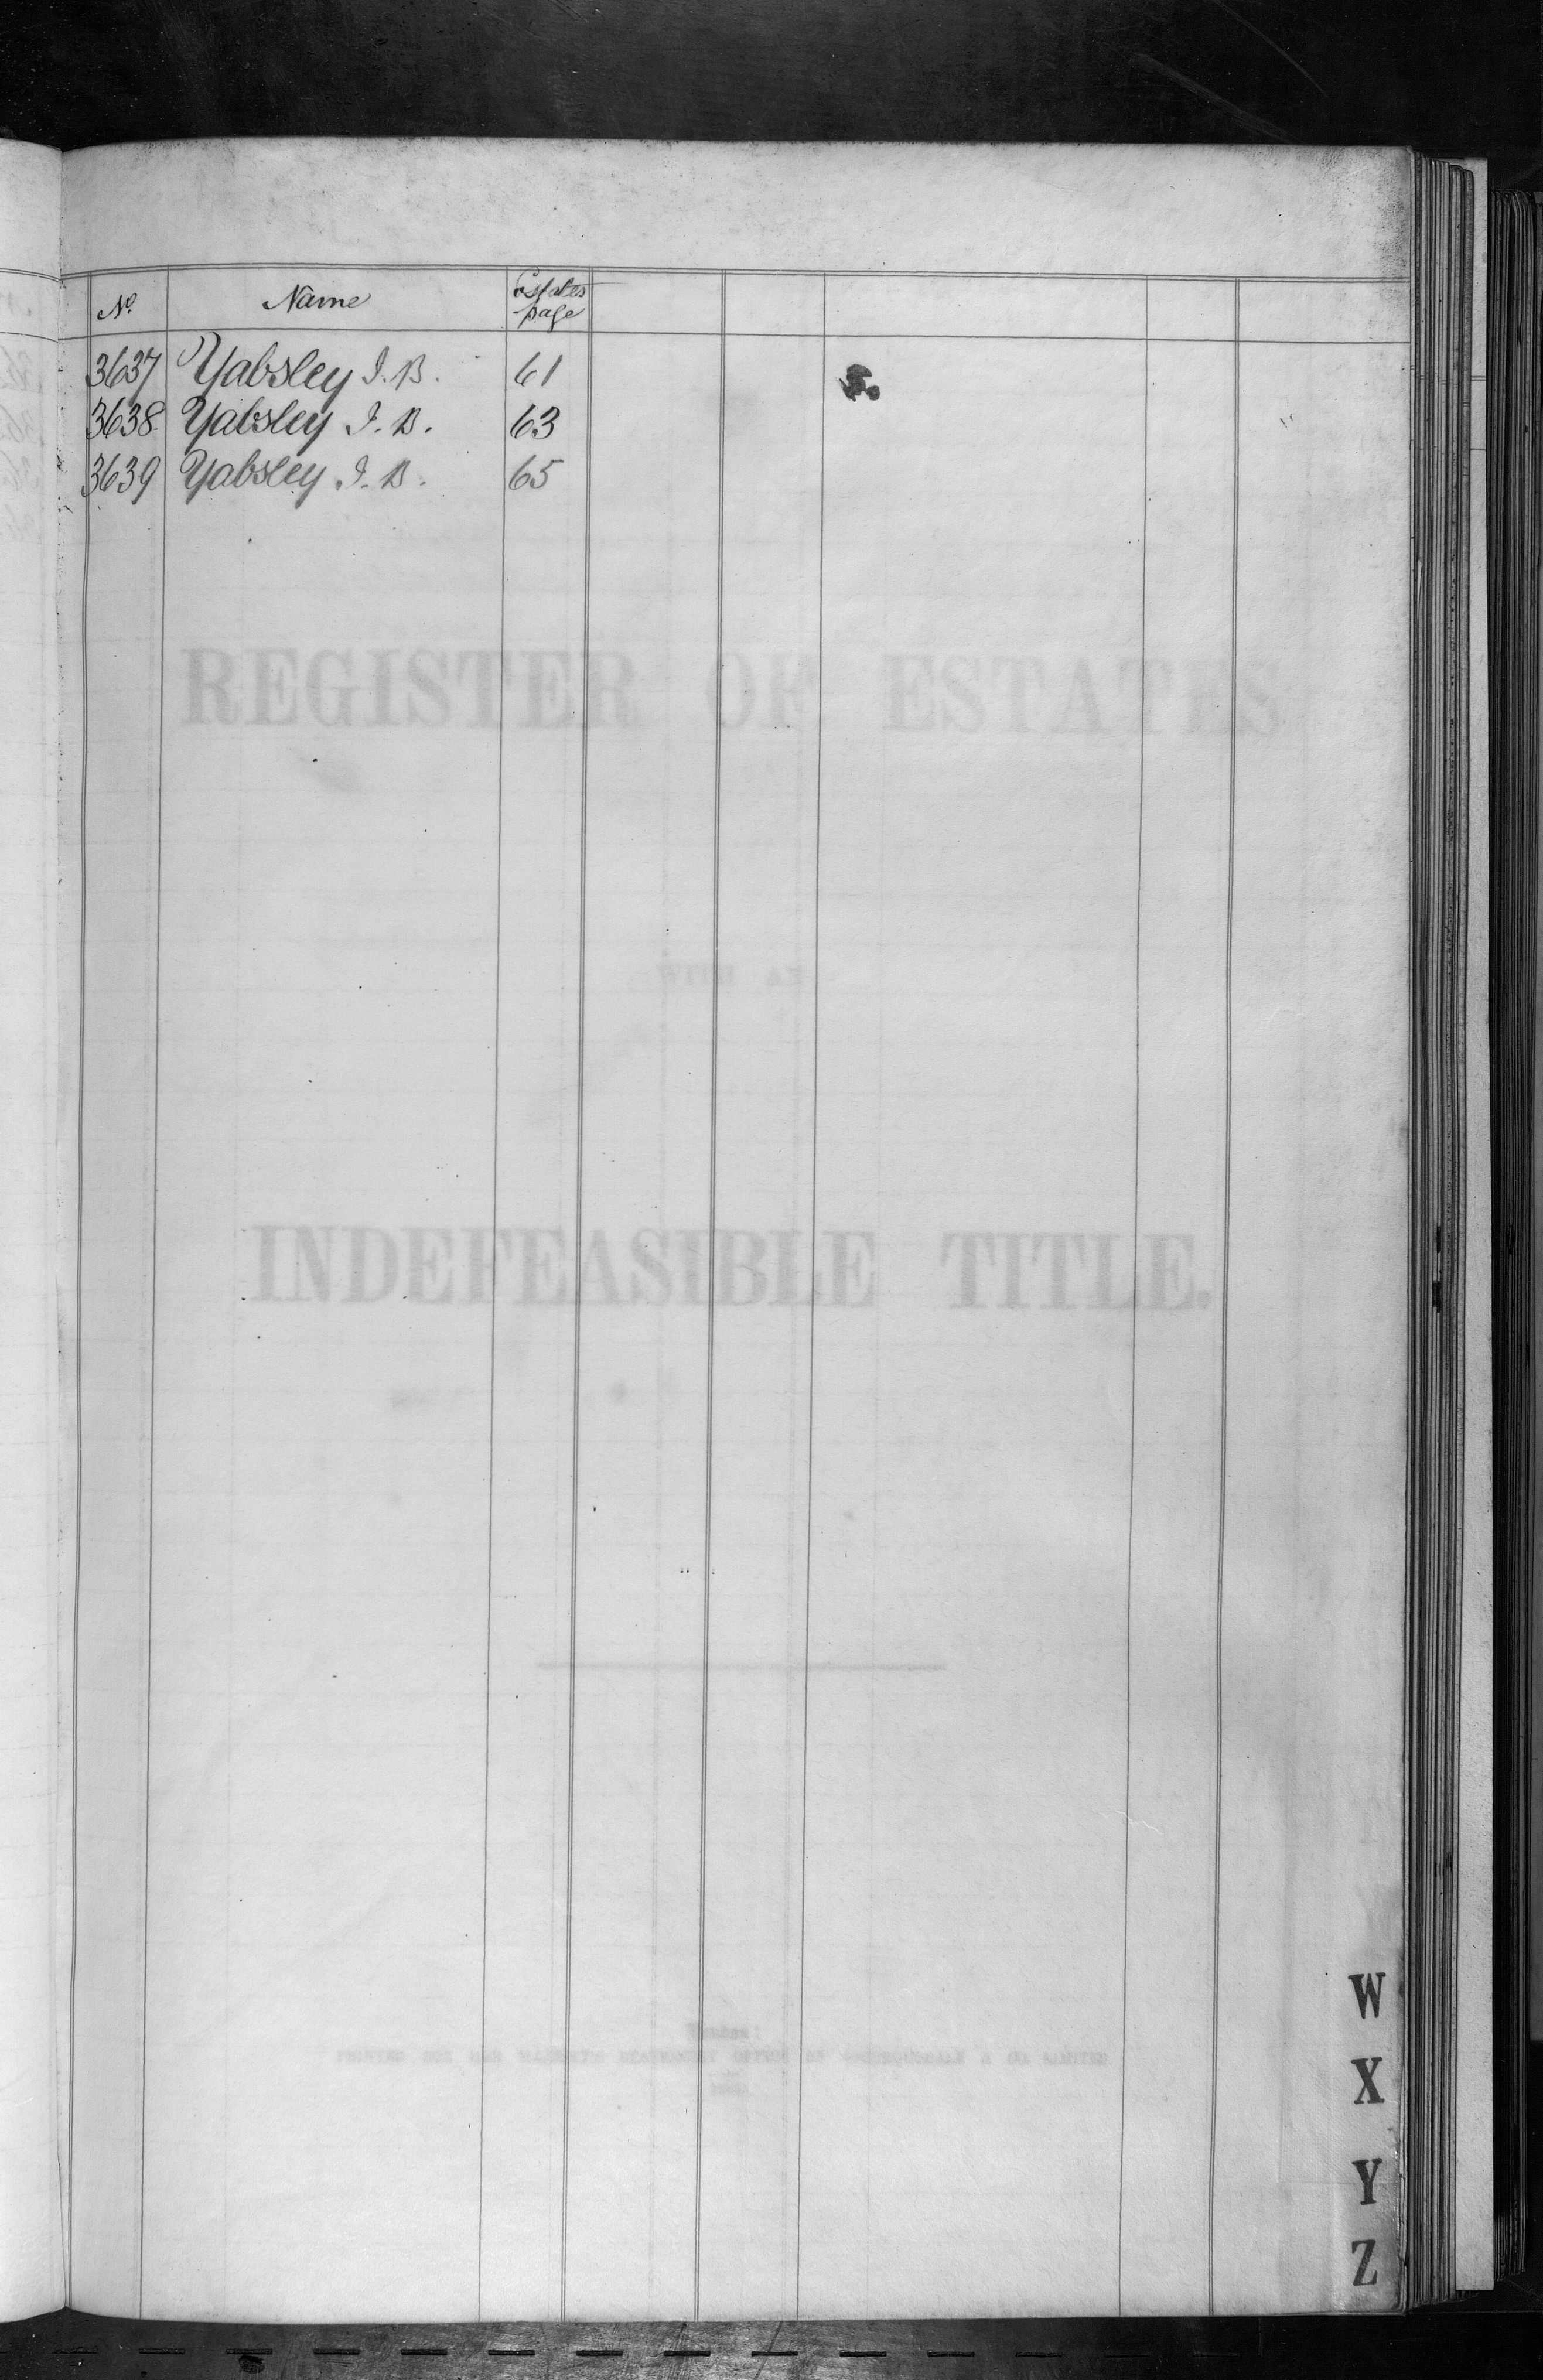 No. Name Estates page
3637 Yabsley J. B. 61
3638 Yabsley J. B. 63
3639 Yabsley J. B. 65
REGISTER OF ESTATES
WITH AN
INDEFEASIBLE TITLE.
London:
W
X
Y
Z